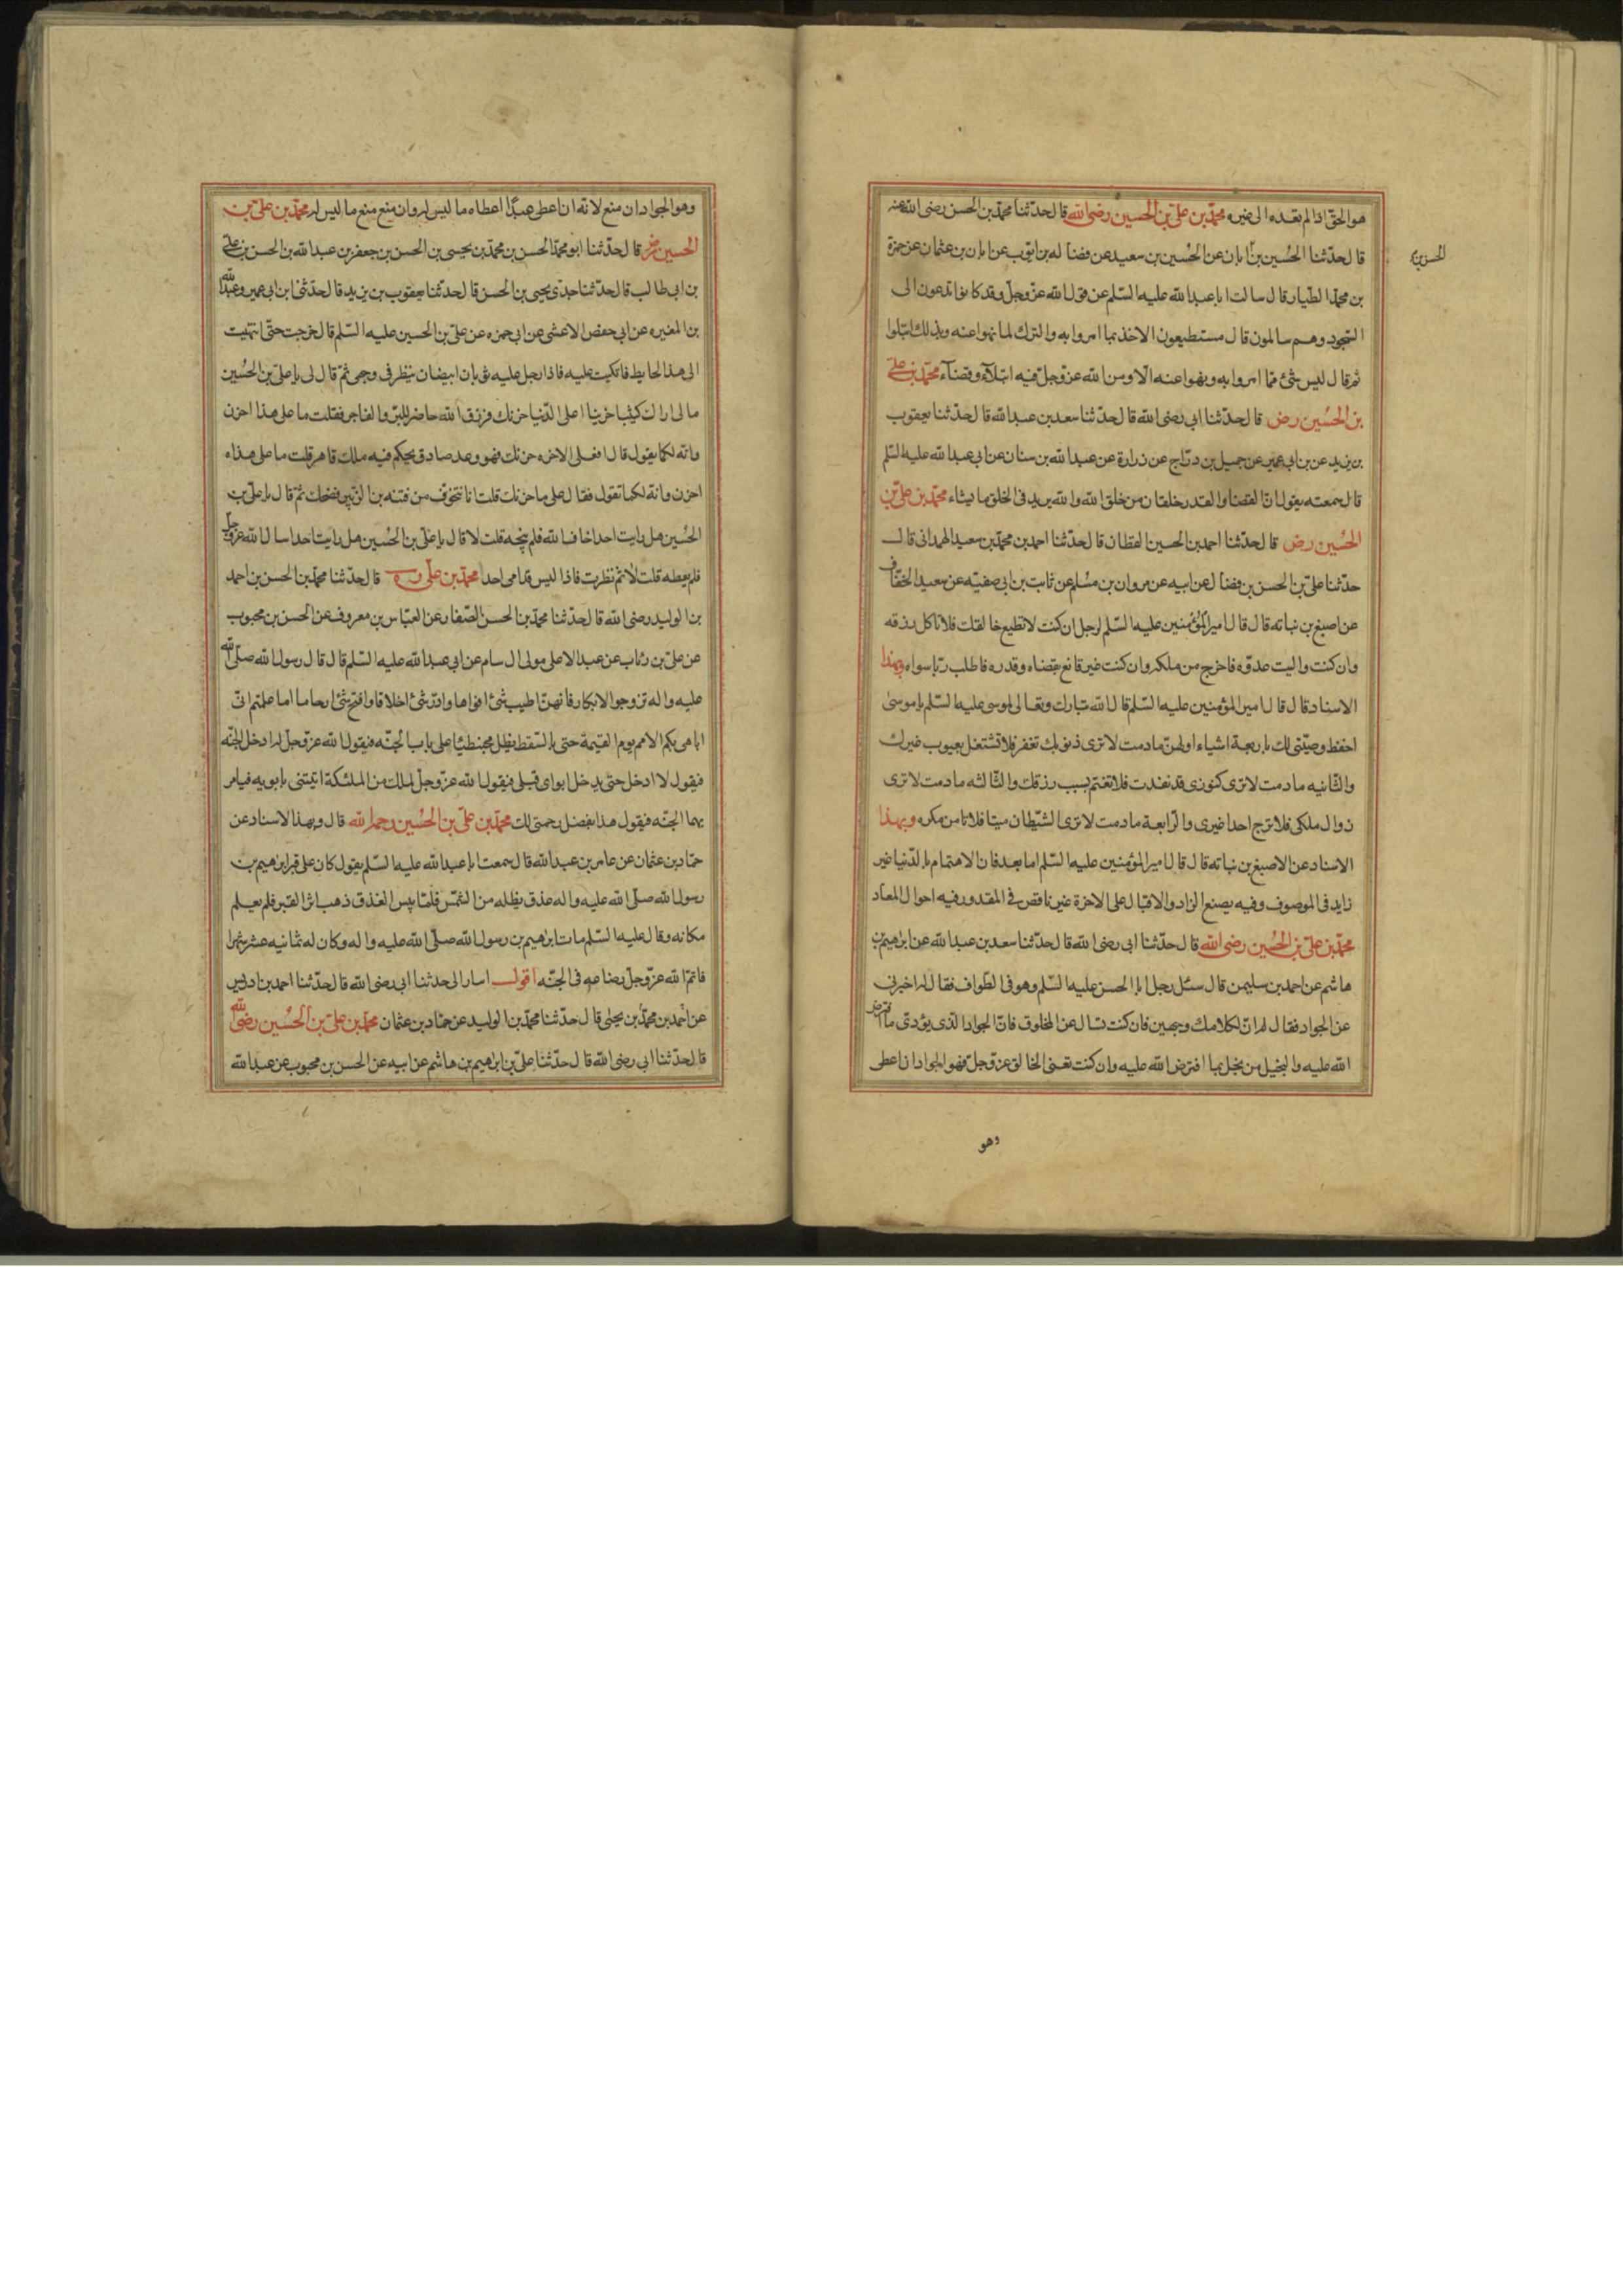 هو الحق اذا لم يقده الى غيره محمد بن علي بن الحسين رضى الله قال حدثنا محمد بن الحسن رضى الله عنه
قال حدثنا الحسين بن ابان عن الحسين بن سعيد عن فضاله بن ايوب عن ابان بن عثمان عن حمزة
الحسن بن
بن محمد الطيار قال سالت ابا عبد الله عليه السلم عن قول الله عز وجل وقد كانوا يدعون الى
السجود وهم سالمون قال مستطيعون الاخذ بما امروا به والترك لما نهوا عنه وبذلك ابتلوا
ثم قال ليس شئ مما امروا به ونهوا عنه الا ومن الله عز وجل فيه ابتلاء وقضاء محمد بن علي
بن الحسين رض قال حدثنا ابي رضى الله قال حدثنا سعد بن عبد الله قال حدثنا يعقوب
بن يزيد عن بن ابي عمير عن جميل بن دراج عن زرارة عن عبد الله بن سنان عن ابي عبد الله عليه السلم
قال سمعته يقول ان القضا والقدر خلقان من خلق الله والله يزيد فى الخلق ما يشاء محمد بن علي بن
الحسين رض قال حدثنا احمد بن الحسين القطان قال حدثنا احمد بن محمد بن سعيد الهمدانى قال
حدثنا علي بن الحسن بن فضال عن ابيه عن مروان بن مسلم عن ثابت بن ابى صفيه عن سعيد الخفاف
عن اصبغ بن نباته قال قال امير المؤمنين عليه السلم لرجل ان كنت لا تطيع خالقك فلا تاكل رزقه
وان كنت واليت عدوه فاخرج من ملكه وان كنت غير قانع بقضاه وقدره فاطلب ربا سواه وبهذا
الاسناد قال قال امير المؤمنين عليه السلم قال الله تبارك وتعالى لموسى عليه السلم يا موسى
احفظ وصيتى لك باربعة اشياء اولهن مادمت لا ترى ذنوبك تغفر فلا تشتغل بعيوب غيرك
والثانيه مادمت لا ترى كنوزى قد نفدت فلا تغتم بسبب رزقك والثالثه مادمت لا ترى
زوال ملكى فلا ترج احدا غيرى والرابعة مادمت لا ترى الشيطان ميتا فلا تامن مكره وبهذا
الاسناد عن الاصبغ بن نباته قال قال امير المؤمنين عليه السلم اما بعد فان الاهتمام بالدنيا غير
زايد فى الموصوف وفيه يصنع الزاد والاقبال على الاخرة غير ناقص فى المقدور وفيه احوال المعاد
محمد بن علي بن الحسين رضى الله قال حدثنا ابى رضى الله قال حدثنا سعد بن عبد الله عن ابراهيم بن
هاشم عن احمد بن سليمن قال سئل رجل ابا الحسن عليه السلم وهو فى الطواف فقال له اخبرنى
عن الجواد فقال له ان لكلامك وجهين فان كنت تسال عن المخلوق فان الجواد الذى يؤدى ما افترض
الله عليه والبخيل من بخل بما افترض الله عليه وان كنت تعنى الخالق عز وجل فهو الجواد ان اعطى
وهو
وهو الجواد ان منع لانه ان اعطى عبدا اعطاه ما ليس له وان منع منع ما ليس له محمد بن علي بن
الحسين رض قال حدثنا ابو محمد الحسن بن محمد بن يحيى بن الحسن بن جعفر بن عبد الله بن الحسن بن علي
بن ابى طالب قال حدثنا جدى يحيى بن الحسن قال حدثنا يعقوب بن يزيد قال حدثنا بن ابى عمير وعبد الله
بن المغيره عن ابى حفص الاعشى عن ابى حمزه عن علي بن الحسين عليه السلم قال خرجت حتى انتهيت
الى هذا الحايط فاتكيت عليه فاذا رجل عليه ثوبان ابيضان ينظر فى وجهى ثم قال لى يا علي بن الحسين
مالى اراك كئيبا حزينا اعلى الدنيا حزنك فرزق الله حاضر للبر والفاجر فقلت ما على هذا احزن
وانه لكما يقول قال افعلى الاخره حزنك فهو وعد صادق يحكم فيه ملك قاهر قلت ما على هذاه
احزن وانه لكما تقول فقال على ما حزنك قلت انا نتخوف من فتنه بن الزبير فضحك ثم قال يا علي بن
الحسين هل رايت احدا خاف الله فلم ينجه قلت لا قال يا علي بن الحسين هل رايت احدا سال الله عز وجل
فلم يعطه قلت لا ثم نظرت فاذا ليس قدامى احد محمد بن علي ره قال حدثنا محمد بن الحسن بن احمد
بن الوليد رضى الله قال حدثنا محمد بن الحسن الصفار عن العباس بن معروف عن الحسن بن محبوب
عن علي بن رئاب عن عبد الاعلى مولى ال سام عن ابى عبد الله عليه السلم قال قال رسول الله صلى الله
عليه واله تزوجوا الابكار فانهن اطيب شئ افواها وادر شئ اخلاقا وافتح شئ ارحاما اما علمتم انى
اباهى بكم الامم يوم القيمة حتى بالسقط يظل محبنطيا على باب الجنه فيقول الله عز وجل له ادخل الجنه
فيقول لا ادخل حتى يدخل ابواى قبلى فيقول الله عز وجل لملك من الملئكة ايتنى بابويه فيامر
بهما الجنه فيقول هذا بفضل رحمتى لك محمد بن علي بن الحسين رحمه الله قال وبهذا الاسناد عن
حماد بن عثمان عن عامر بن عبد الله قال سمعت ابا عبد الله عليه السلم يقول كان على قبر ابراهيم بن
رسول الله صلى الله عليه واله عذق يظله من الشمس فلما يبس العذق ذهب اثر القبر فلم يعلم
مكانه وقال عليه السلم مات ابراهيم بن رسول الله صلى الله عليه واله وكان له ثمانيه عشر شهرا
فاتم الله عز وجل رضاعه فى الجنه اقول اسار الى حدثنا ابى رضى الله قال حدثنا احمد بن ادريس
عن احمد بن محمد بن يحيى قال حدثنا محمد بن الوليد عن حماد بن عثمان محمد بن علي بن الحسين رضى الله
قال حدثنا ابى رضى الله قال حدثنا علي بن ابراهيم بن هاشم عن ابيه عن الحسن بن محبوب عن عبد الله